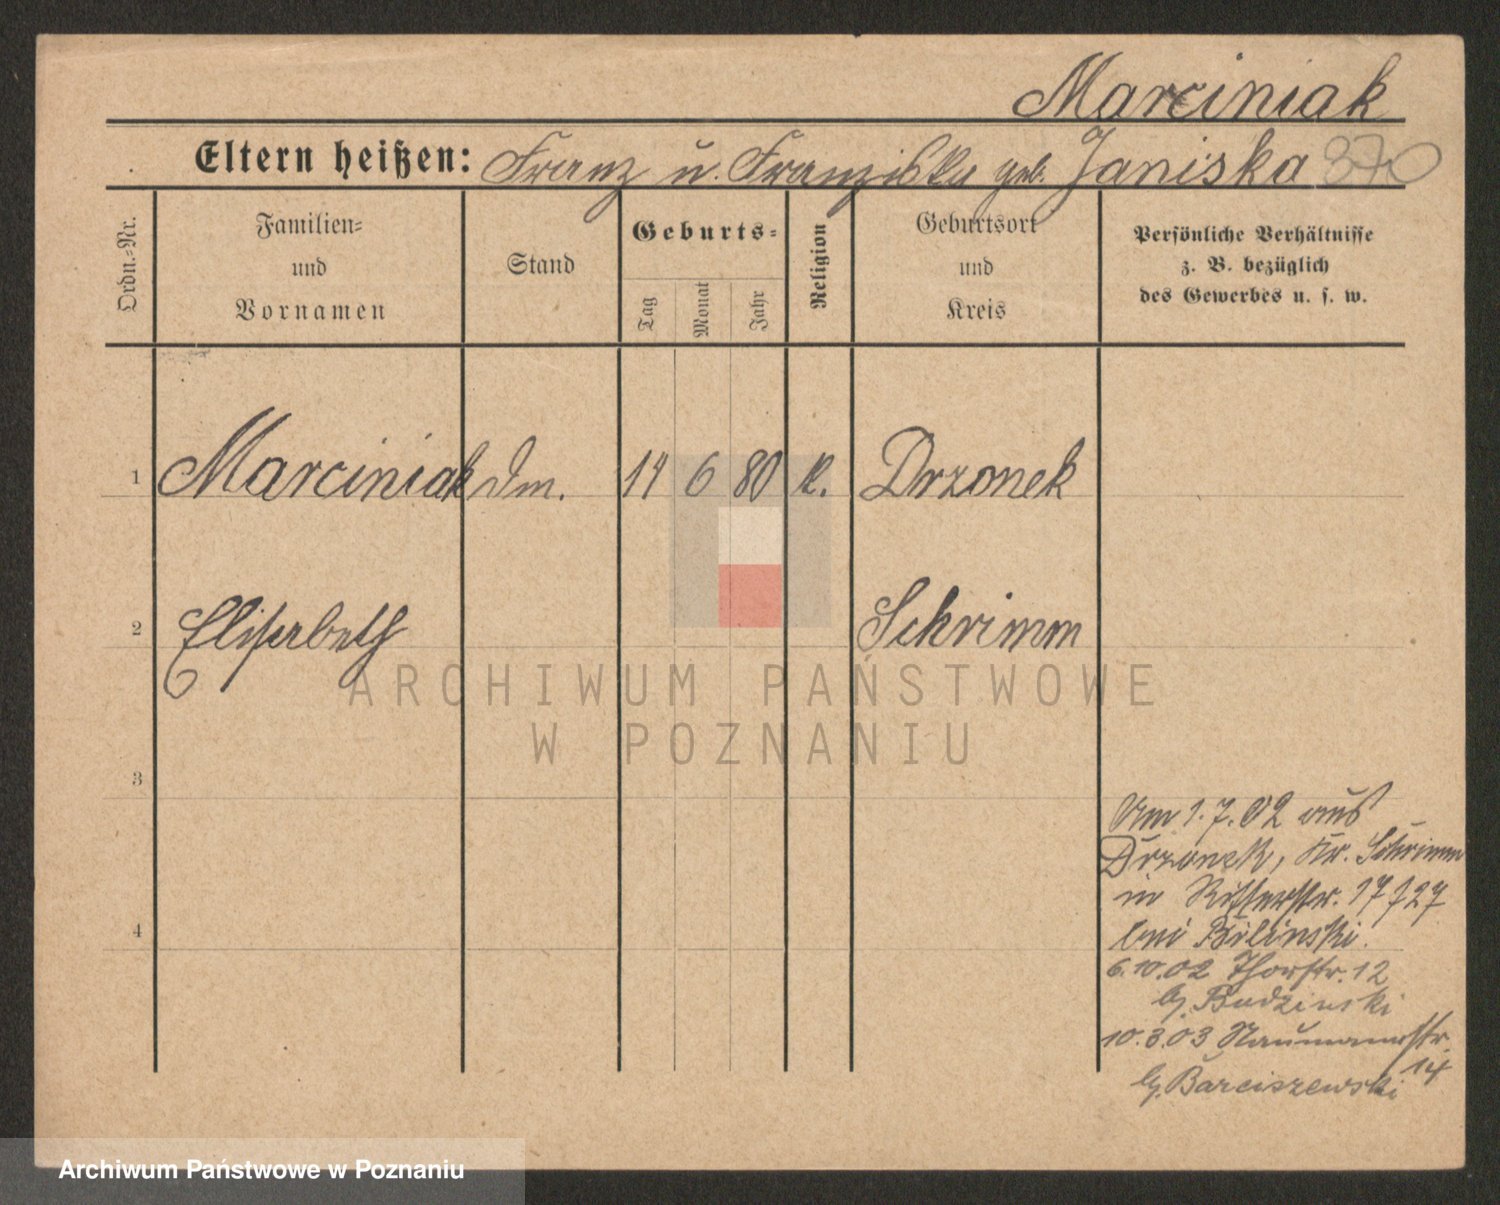 Marciniak
Eltern heißen: Franz u. Franziska geb. Janiska 370
Ordn.-Nr.
Familien-
und
Vornamen
Stand
Geburts-
Tag
Monat
Jahr
Religion
Geburtsort
und
Kreis
Persönliche Verhältnisse
z. B. bezüglich
des Gewerbes u. s. w.
1 Marciniak Dm. 14 6 80 K. Drzonek
2 Elisabeth Schrimm
3
4
Am 1.7.02 aus
Drzonek, Kr. Schrimm
in Ritterstr. 17
bei Bilinski.
6.10.02 Thorstr. 12
b. Budzinski
10.3.03 Naumannstr.
14
b. Barciszewski
ARCHIWUM PAŃSTWOWE
W POZNANIU
Archiwum Państwowe w Poznaniu